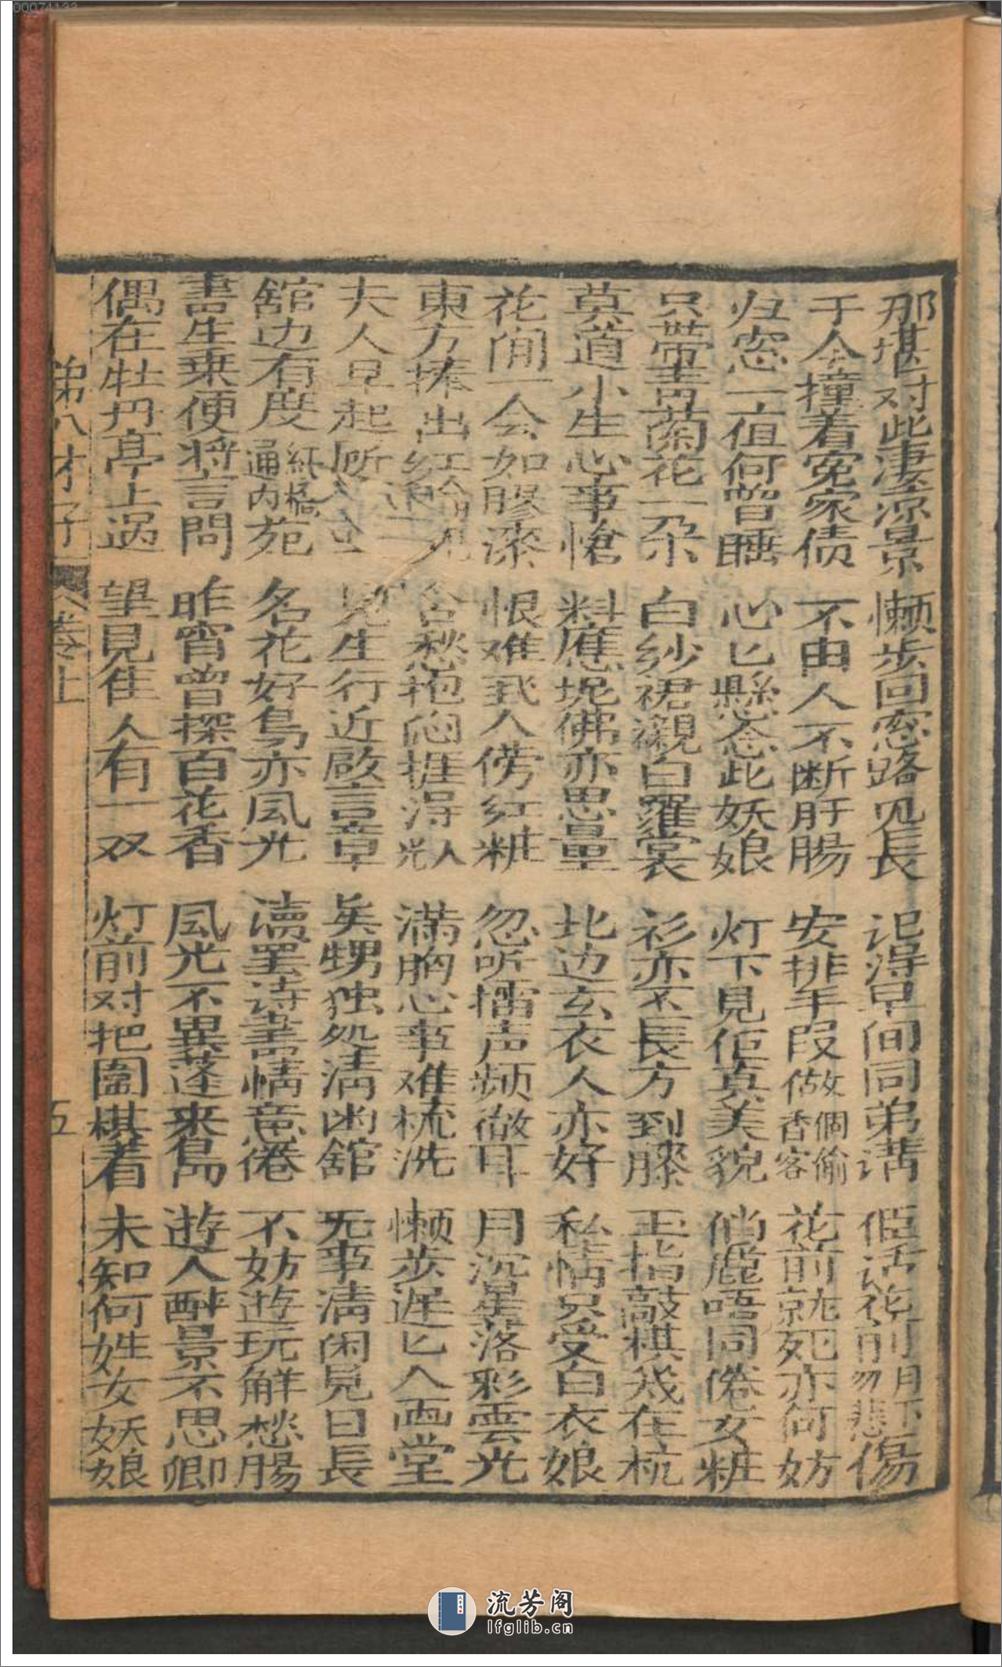 那堪对此凄凉景 懒步回窓路见长 记得早间同弟講 佢话花前月下勿悲傷
于今撞着冤家债 不由人不断肝腸 安排手段做個偷香客 花前就死亦何妨
归窓一直何曾睡 心心縣念此妖娘 灯下見佢真美貌 俏麗唔同倦女粧
只帶青蘭花一朶 白紗裙襯白羅裳 衫亦不長方到膝 玉指敲棋戏在梳
莫道小生心事愴 料應坭佛亦思量 北边玄衣人亦好 私情只受白衣娘
花间一会如膠漆 恨难我入傍红粧 忽听擂声频徹耳 月沉星落彩雲光
東方捧出红輪現 含愁抱闷捱得光 满胸心事难梳洗 懒步遅匕入画堂
夫人早起 見生行近啟言章 矣甥独処清幽舘 无事清闲見日長
舘边有度紅橋通内苑 名花好鳥亦風光 讀罢诗書情意倦 不妨遊玩解愁腸
書生乗便将言問 昨宵曾探百花香 風光不異蓬来島 遊人醉景不思卿
偶在牡丹亭上過 望見隹人有一双 灯前对把圍棋着 未知何姓女妖娘
第八才子 卷上 五
00074133
流芳阁
lfglib.cn